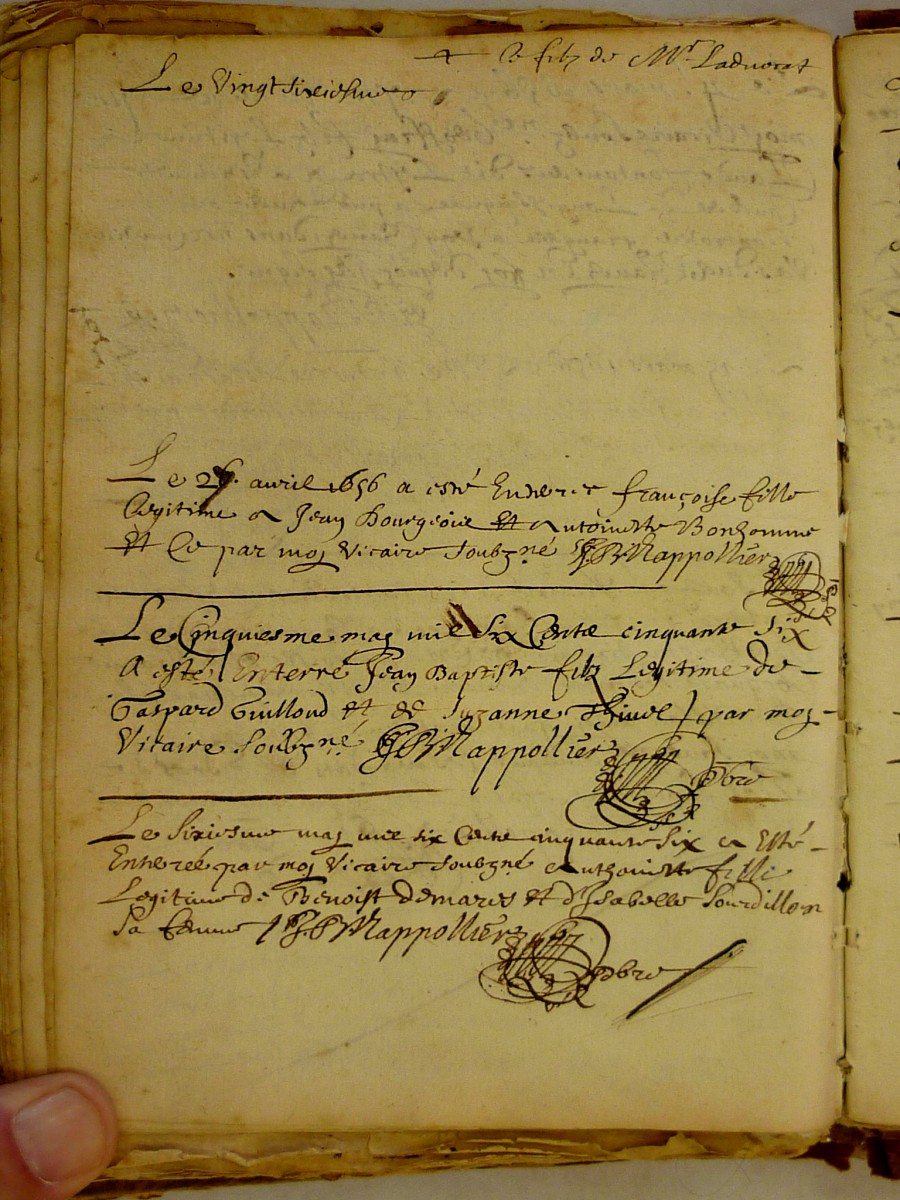 + le filz de Mr Laduocat
Le Vingtsixiesme
Le 26 avril 1656 a esté Enterree françoise fille
legitime a Jean Bourgeois et antoinette Bonhomme
et Ce par moy Vicaire soubzné JPMappollier
Le Cinquiesme may mil six Centz cinquante six
A esté Enterré Jean Baptiste filz Legitime de
Gaspard Guilloud et de Suzanne par moy
Vicaire soubzgné JPMappollier pbre
Le sixiesme may mil six Centz cinquante six a Esté
Enterée par moy Vicaire soubzgné anthoinette fille
Legitime de Benoist demares et d'Isabelle Sourdillon
sa femme JPMappollier pbre